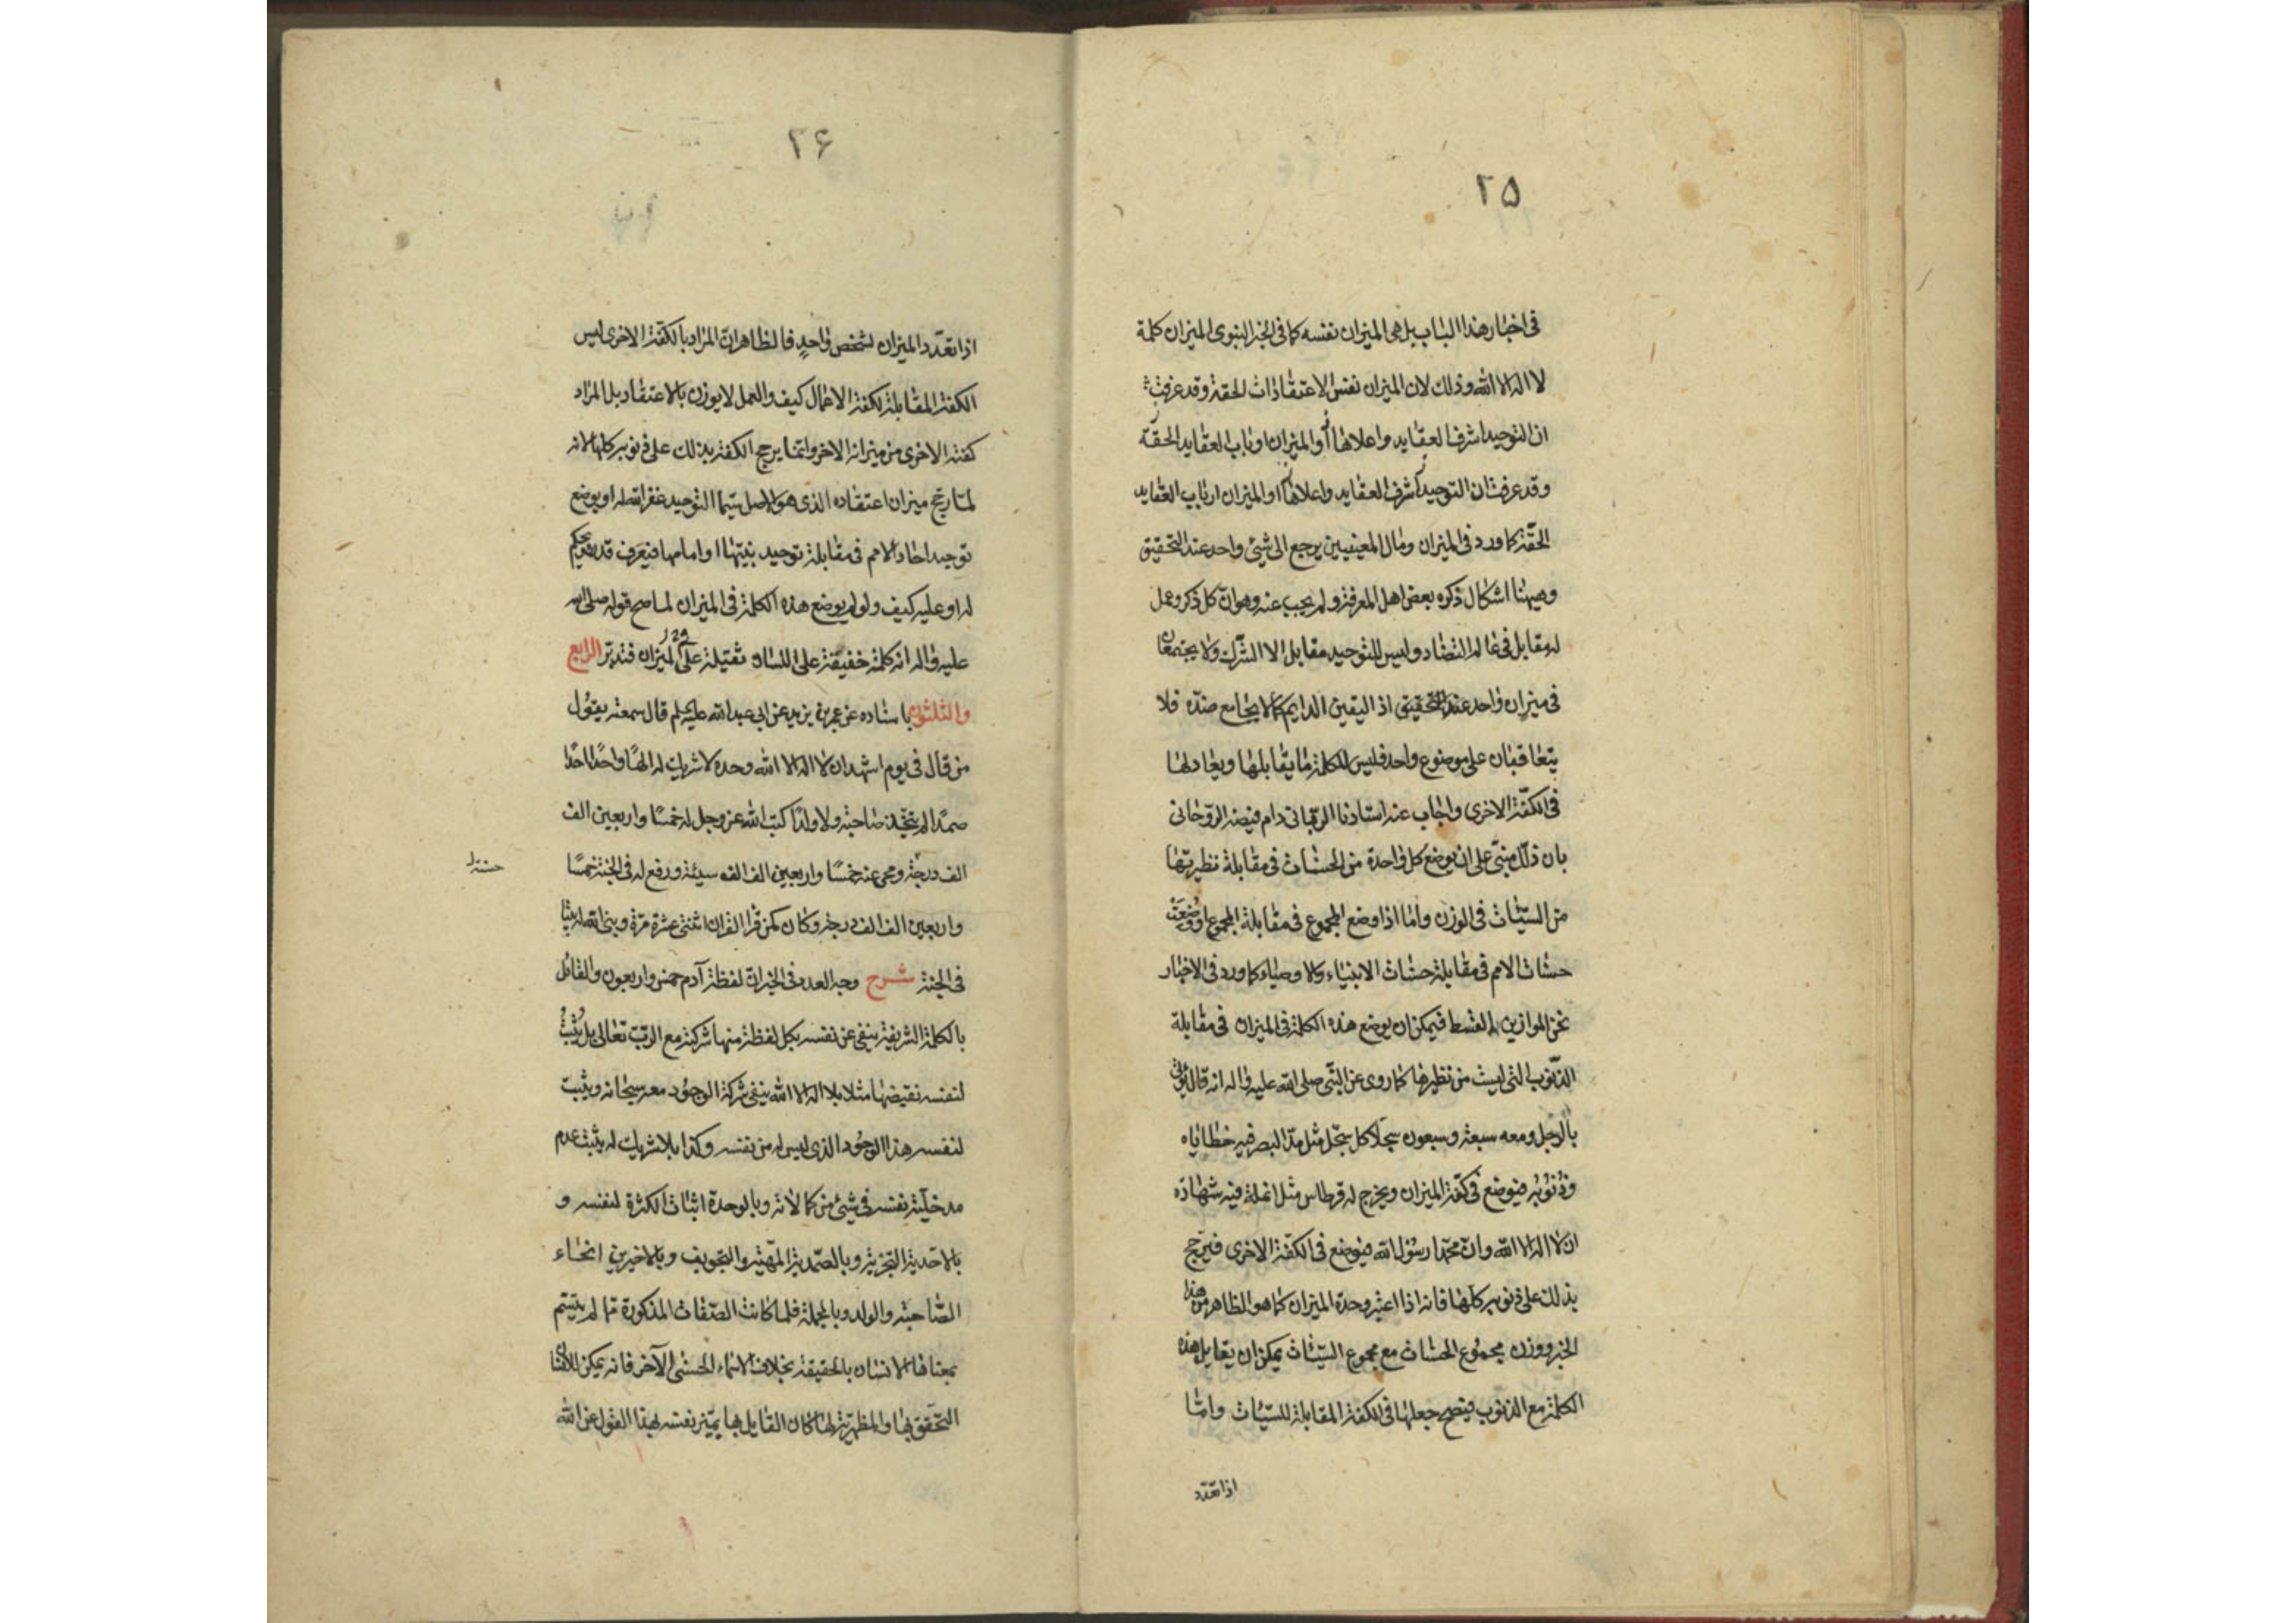 ٢٥
فى اخبار هذا الباب بل هى الميزان نفسه كما فى الخبر النبوى الميزان كلمة
لا اله الا الله وذلك لان الميزان نفس الاعتقادات الحقة وقد عرفت
ان التوحيد اشرف العقايد واعلاها أو الميزان ارباب العقايد الحقّة
وقد عرفت ان التوحيد أشرف العقايد واعلاها او الميزان ارباب العقايد
الحقّة كما ورد فى الميزان ومال المعنيين يرجع الى شئ واحد عند التحقيق
وهيهنا اشكال ذكره بعض اهل المعرفة ولم يجب عنه وهو انّ كل ذكر وعمل
له مقابل فى عالم التضاد وليس للتوحيد مقابل الا الشّرك ولا يجتمعان
فى ميزان واحد عند التحقيق اذ اليقين الدايم كما لا يجامع ضدّه فلا
يتعاقبان على موضوع واحد فليس للكلمة ما يقابلها ويعادلها
فى الكفّة الاخرى واجاب عنه استادنا الربّانى دام فيضه الرّوحانى
بان ذلك مبنىّ على ان يوضع كل واحدة من الحسنات فى مقابلة نظيرتها
من السيّئات فى الوزن وامّا اذا وضع المجموع فى مقابلة المجموع او وُضِعَتْ
حسنات الامم فى مقابلة حسنات الانبياء والاوصياء كما ورد فى الاخبار
نحن الموازين القسط فيمكن ان يوضع هذه الكلمة فى الميزان فى مقابلة
الذّنوب التى ليست من نظيرها كما روى عن النّبى صلى الله عليه واله انه قال يُؤتى
بالرّجل ومعه سبعة وسبعون سجلّا كل سجّل مثل مدّ البصر فيه خطاياه
وذنوبه فيوضع فى كفّة الميزان ويخرج له قرطاس مثل انملة فيه شهادة
ان لا اله الا الله وانّ محمّدا رسول الله فيوضع فى الكفّة الاخرى فيرجح
بذلك على ذنوبه كلّها فانه اذا اعتبر وحدة الميزان كما هو الظاهر من هذا
الخبر ووزن مجموع الحسنات مع مجموع السيّئات يمكن ان يقابل هذه
الكلمة مع الذنوب فيصحّ جعلها فى الكفة المقابلة للسيّئات وامّا
اذا تعدّد
٢۶
اذا تعدّد الميزان لشخص واحدٍ فالظاهر انّ المراد بالكفّة الاخرى ليس
الكفة المقابلة لكفة الاعمال كيف والعمل لا يوزن بالاعتقاد بل المراد
كفته الاخرى من ميزانه الاخر وانّما يرجح الكفة بذلك على ذنوبه كلها لانه
لمّا رجّح ميزان اعتقاده الذى هو الاصل سيّما التوحيد غفر الله له او يوضع
توحيد احاد الامم فى مقابلة توحيد نبيّها او امامها فيعرف قدره فيحكم
له او عليه كيف ولو لم يوضع هذه الكلمة فى الميزان لما صح قوله صلى الله
عليه واله انه كلمة خفيفة على اللسان ثقيلة على الميزان فتدبّر الرابع
والثلثون باسناده عن عمر بن يزيد عن ابى عبد الله عليه السلم قال سمعته يقول
من قال فى يوم اشهد ان لا اله الا الله وحده لا شريك له الهًا واحدًا احدًا
صمدًا لم يتّخذ صاحبة ولا ولدًا كتب الله عز وجل له خمسًا واربعين الف
الف درجة ومحى عنه خمسًا واربعين الف الف سيئة ورفع له فى الجنة خمسًا
حسنة
واربعين الف الف درجة وكان كمن قرأ القران اثنتى عشرة مرّة وبنى الله له بيتا
فى الجنة شرح وجه العدد فى الخبر انّ لفظة آدم خمس واربعون والقائل
بالكلمة الشريفة ينفى عن نفسه بكل لفظة منها شركة مع الربّ تعالى بل يُثبتُ
لنفسه نقيضها مثلا بلا اله الا الله ينفى شركة الوجود معه سبحانه ويثبت
لنفسه هذا الوجود الذى ليس له من نفسه وكذا بلا شريك له يثبت عدم
مدخليّة نفسه فى شيئ من كمالاته وبالوحدة اثبات الكثرة لنفسه و
بالاحديّة التجزية وبالصّمديّة المهيّة والتجويف وبالاخيرين انحاء
الصّاحبة والولد وبالجملة فلما كانت الصّفات المذكورة ممّا لم يتّسم
بمعناها الانسان بالحقيقة بخلاف الاسماء الحسنى الآخر فانه يمكن للانسان
التّحقق بها والمظهريّة لها كان القايل بها يميّز نفسه بهذا القول عن الله